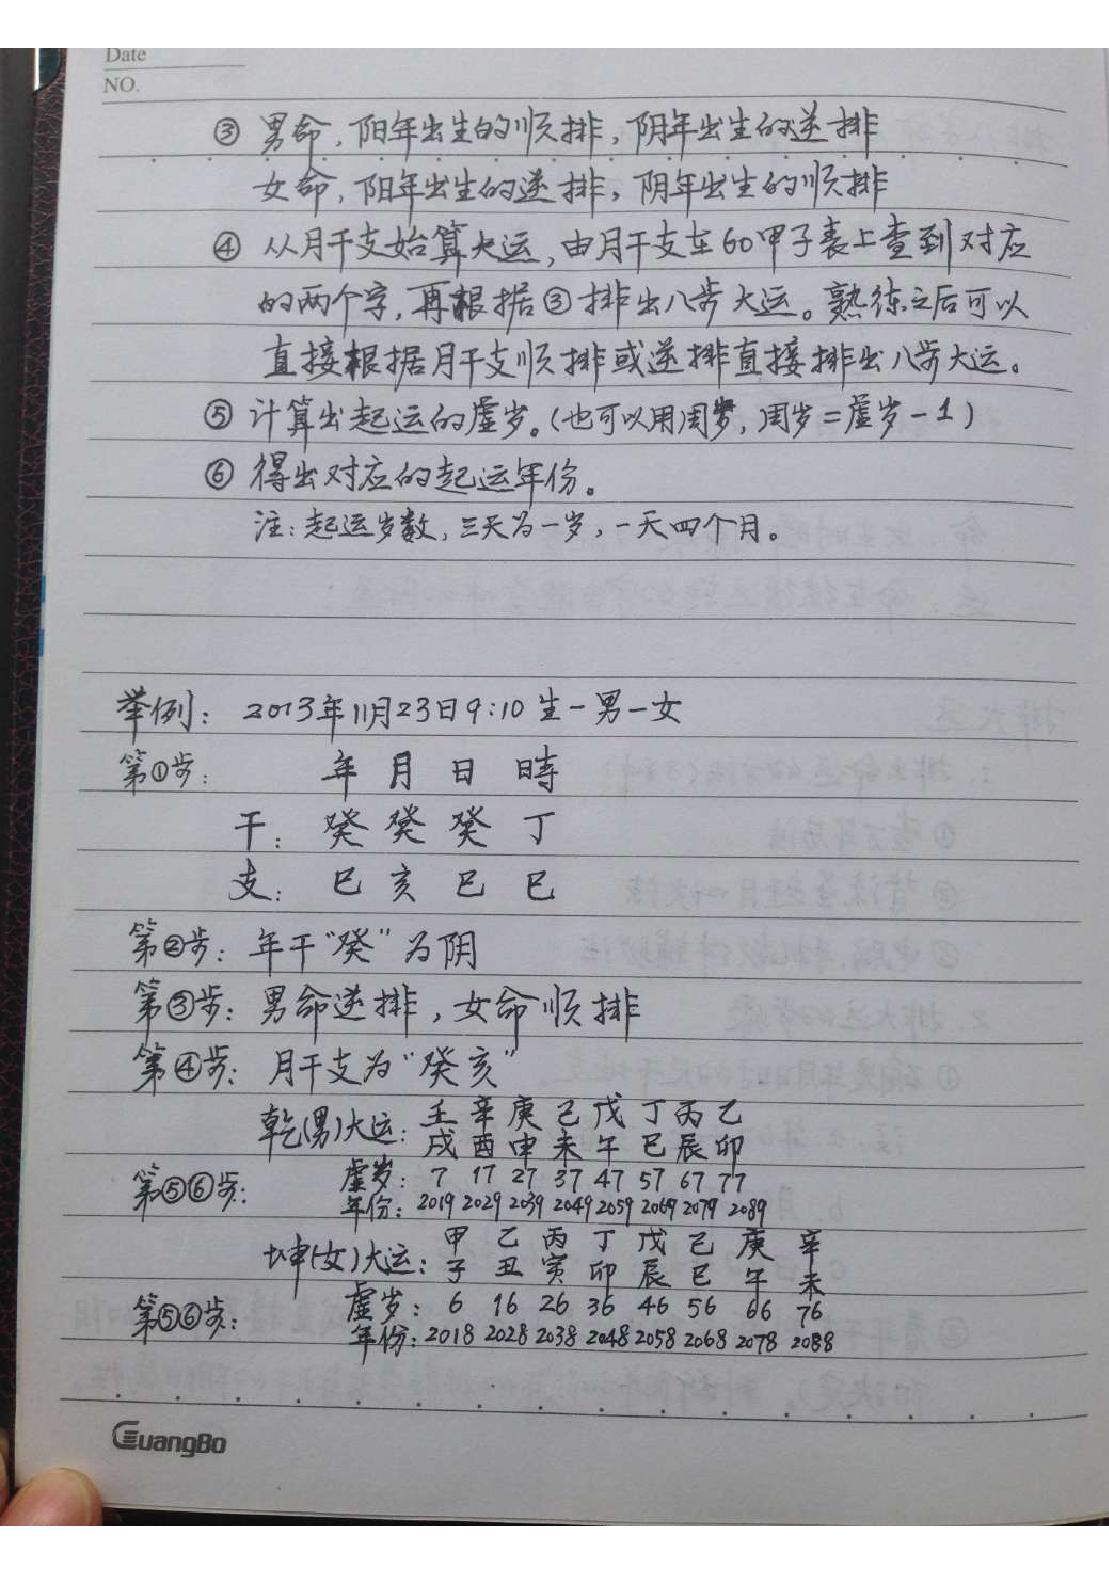 Date
NO.
③ 男命，阳年出生的顺排，阴年出生的逆排
女命，阳年出生的逆排，阴年出生的顺排
④ 从月干支始算大运，由月干支在60甲子表上查到对应
的两个字，再根据③排出八步大运。熟练之后可以
直接根据月干支顺排或逆排直接排出八步大运。
⑤ 计算出起运的虚岁。(也可以用周岁，周岁=虚岁-1)
⑥ 得出对应的起运年份。
注：起运岁数，三天为一岁，一天四个月。
举例： 2013年11月23日9:10生一男一女
第①步： 年 月 日 時
干： 癸 癸 癸 丁
支： 巳 亥 巳 巳
第②步：年干“癸”为阴
第③步：男命逆排，女命顺排
第④步：月干支为“癸亥”
乾(男)大运： 壬 辛 庚 己 戊 丁 丙 乙
戌 酉 申 未 午 巳 辰 卯
第⑤⑥步： 虚岁： 7 17 27 37 47 57 67 77
年份： 2019 2029 2039 2049 2059 2069 2079 2089
坤(女)大运： 甲 乙 丙 丁 戊 己 庚 辛
子 丑 寅 卯 辰 巳 午 未
第⑤⑥步： 虚岁： 6 16 26 36 46 56 66 76
年份： 2018 2028 2038 2048 2058 2068 2078 2088
GuangBo